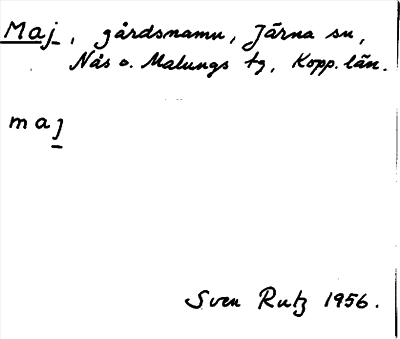 Maj, gårdsnamn, Järna sn,
Nås o. Malungs tg, Kopp. län.
maj
Sven Rutz 1956.